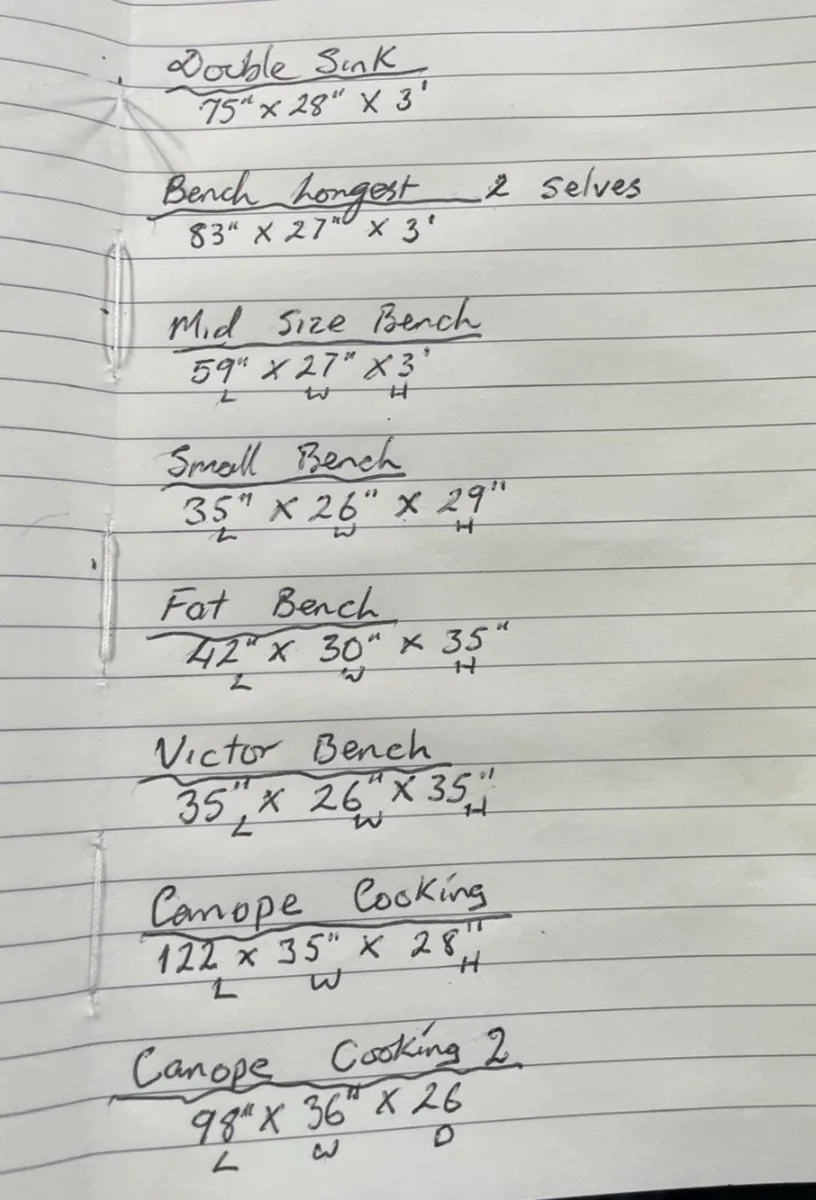 Double Sink
75" x 28" x 3'
Bench Longest 2 selves
83" x 27" x 3'
Mid Size Bench
59" x 27" x 3'
L W H
Small Bench
35" x 26" x 29"
L W H
Fat Bench
42" x 30" x 35"
L W H
Victor Bench
35" x 26" x 35"
L W H
Canope Cooking
122 x 35" x 28"
L W H
Canope Cooking 2
98" x 36" x 26
L W D